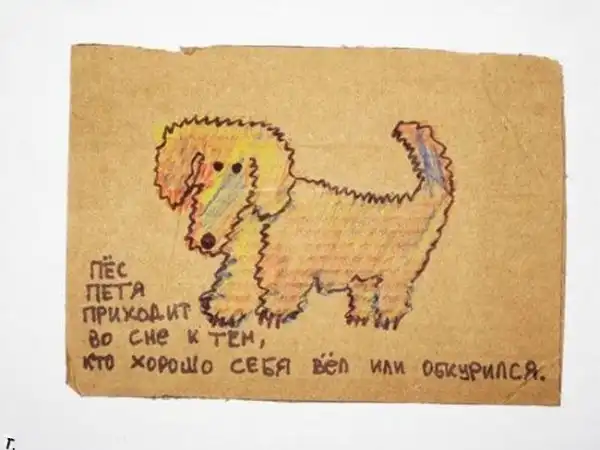 ПЁС
ПЕТЯ
ПРИХОДИТ
ВО СНЕ К ТЕМ,
КТО ХОРОШО СЕБЯ ВЁЛ ИЛИ ОБКУРИЛСЯ.
г.